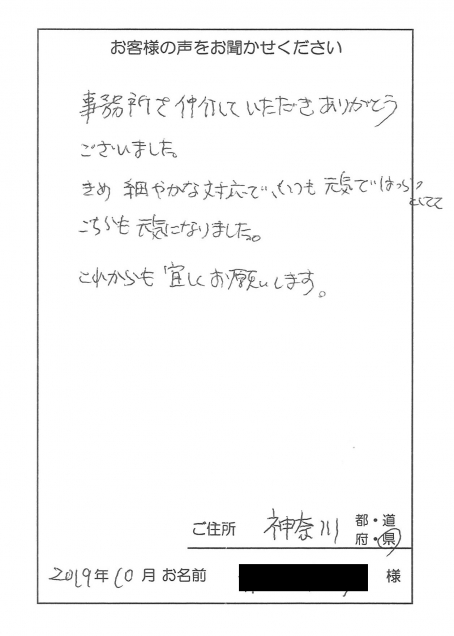 お客様の声をお聞かせください
事務所を仲介していただきありがとう
ございました。
きめ細やかな対応で、いつも元気ではつらつ
としてて
こちらも元気になりました。
これからも宜しくお願いします。
ご住所 神奈川 都・道
府・県
2019年10月 お名前 様